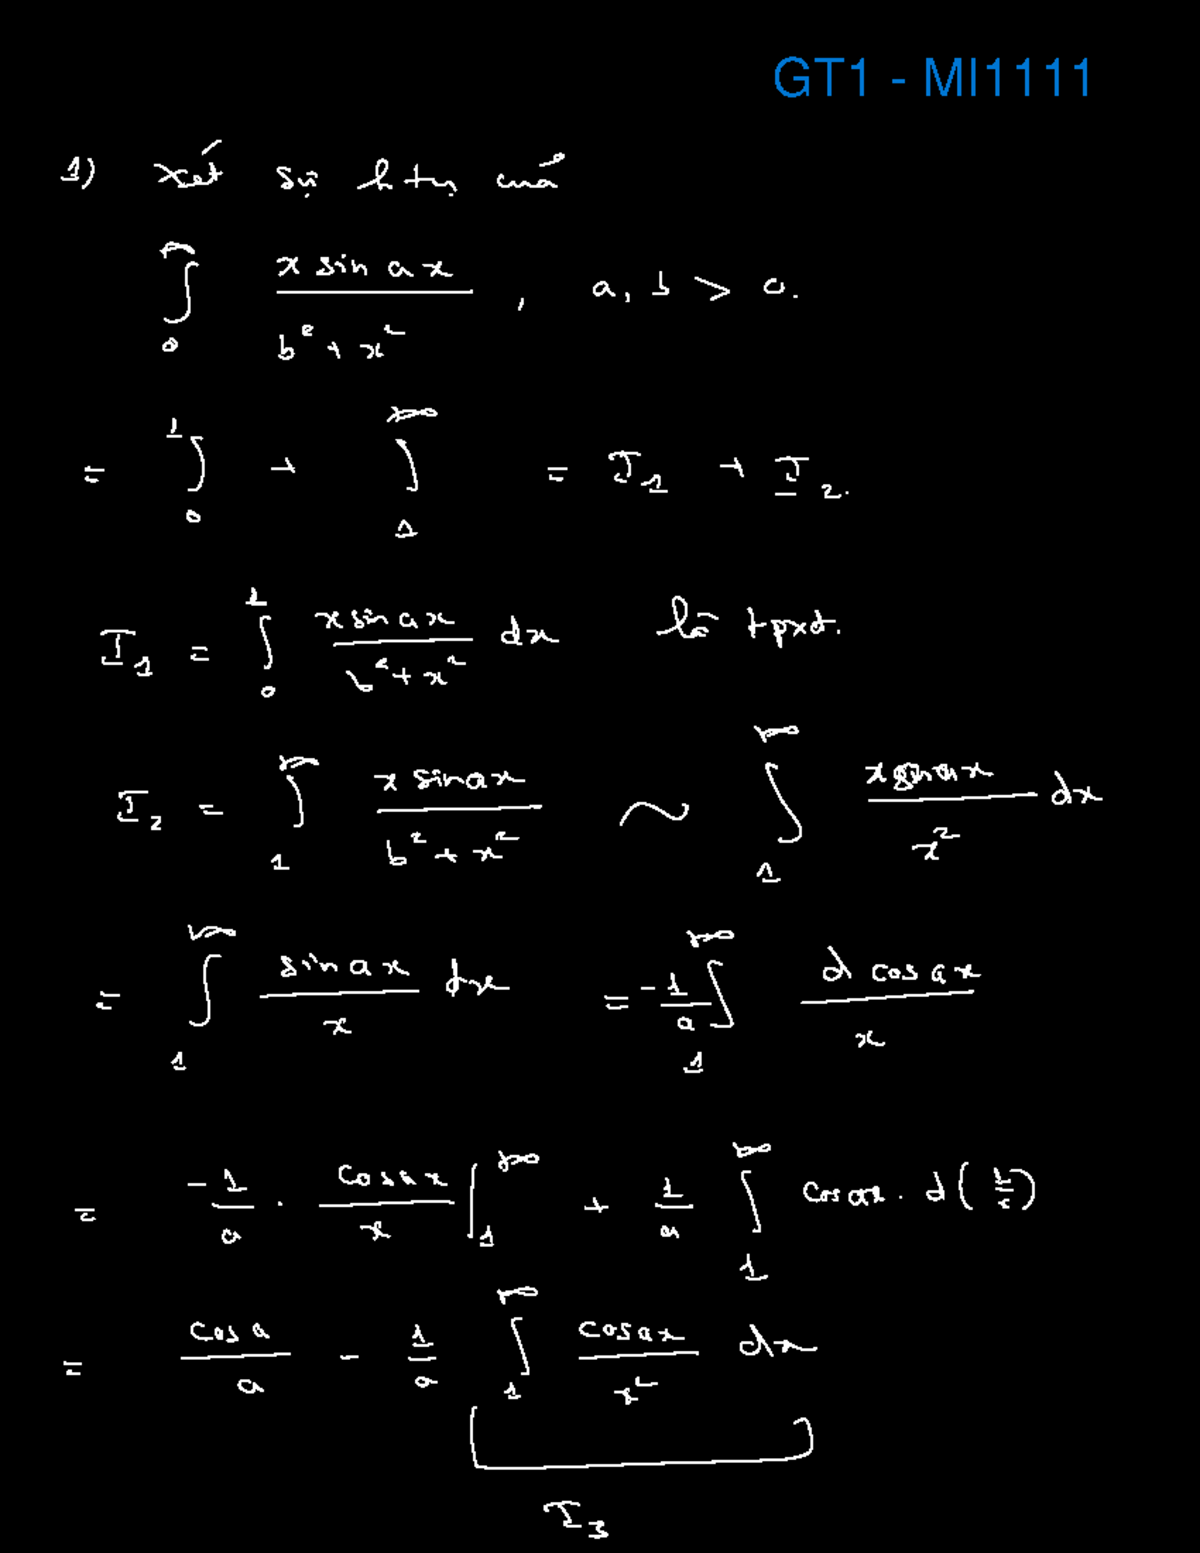 GT1 - MI1111
1) Xét sự htụ của
∫₀^∞ (x sin ax)/(b² + x²), a, b > 0.
= ∫₀^1 + ∫₁^{+∞} = I₁ + I₂.
I₁ = ∫₀^1 (x sin ax)/(b² + x²) dx là tpxđ.
I₂ = ∫₁^{+∞} (x sin ax)/(b² + x²) ~ ∫₁^{+∞} (x sin ax)/x² dx
= ∫₁^{+∞} (sin ax)/x dx = -1/a ∫₁^{+∞} (d cos ax)/x
= -1/a · (cos ax)/x |₁^{+∞} + 1/a ∫₁^{+∞} cos ax · d(1/x)
= (cos a)/a - 1/a ∫₁^{+∞} (cos ax)/x² dx
I₃